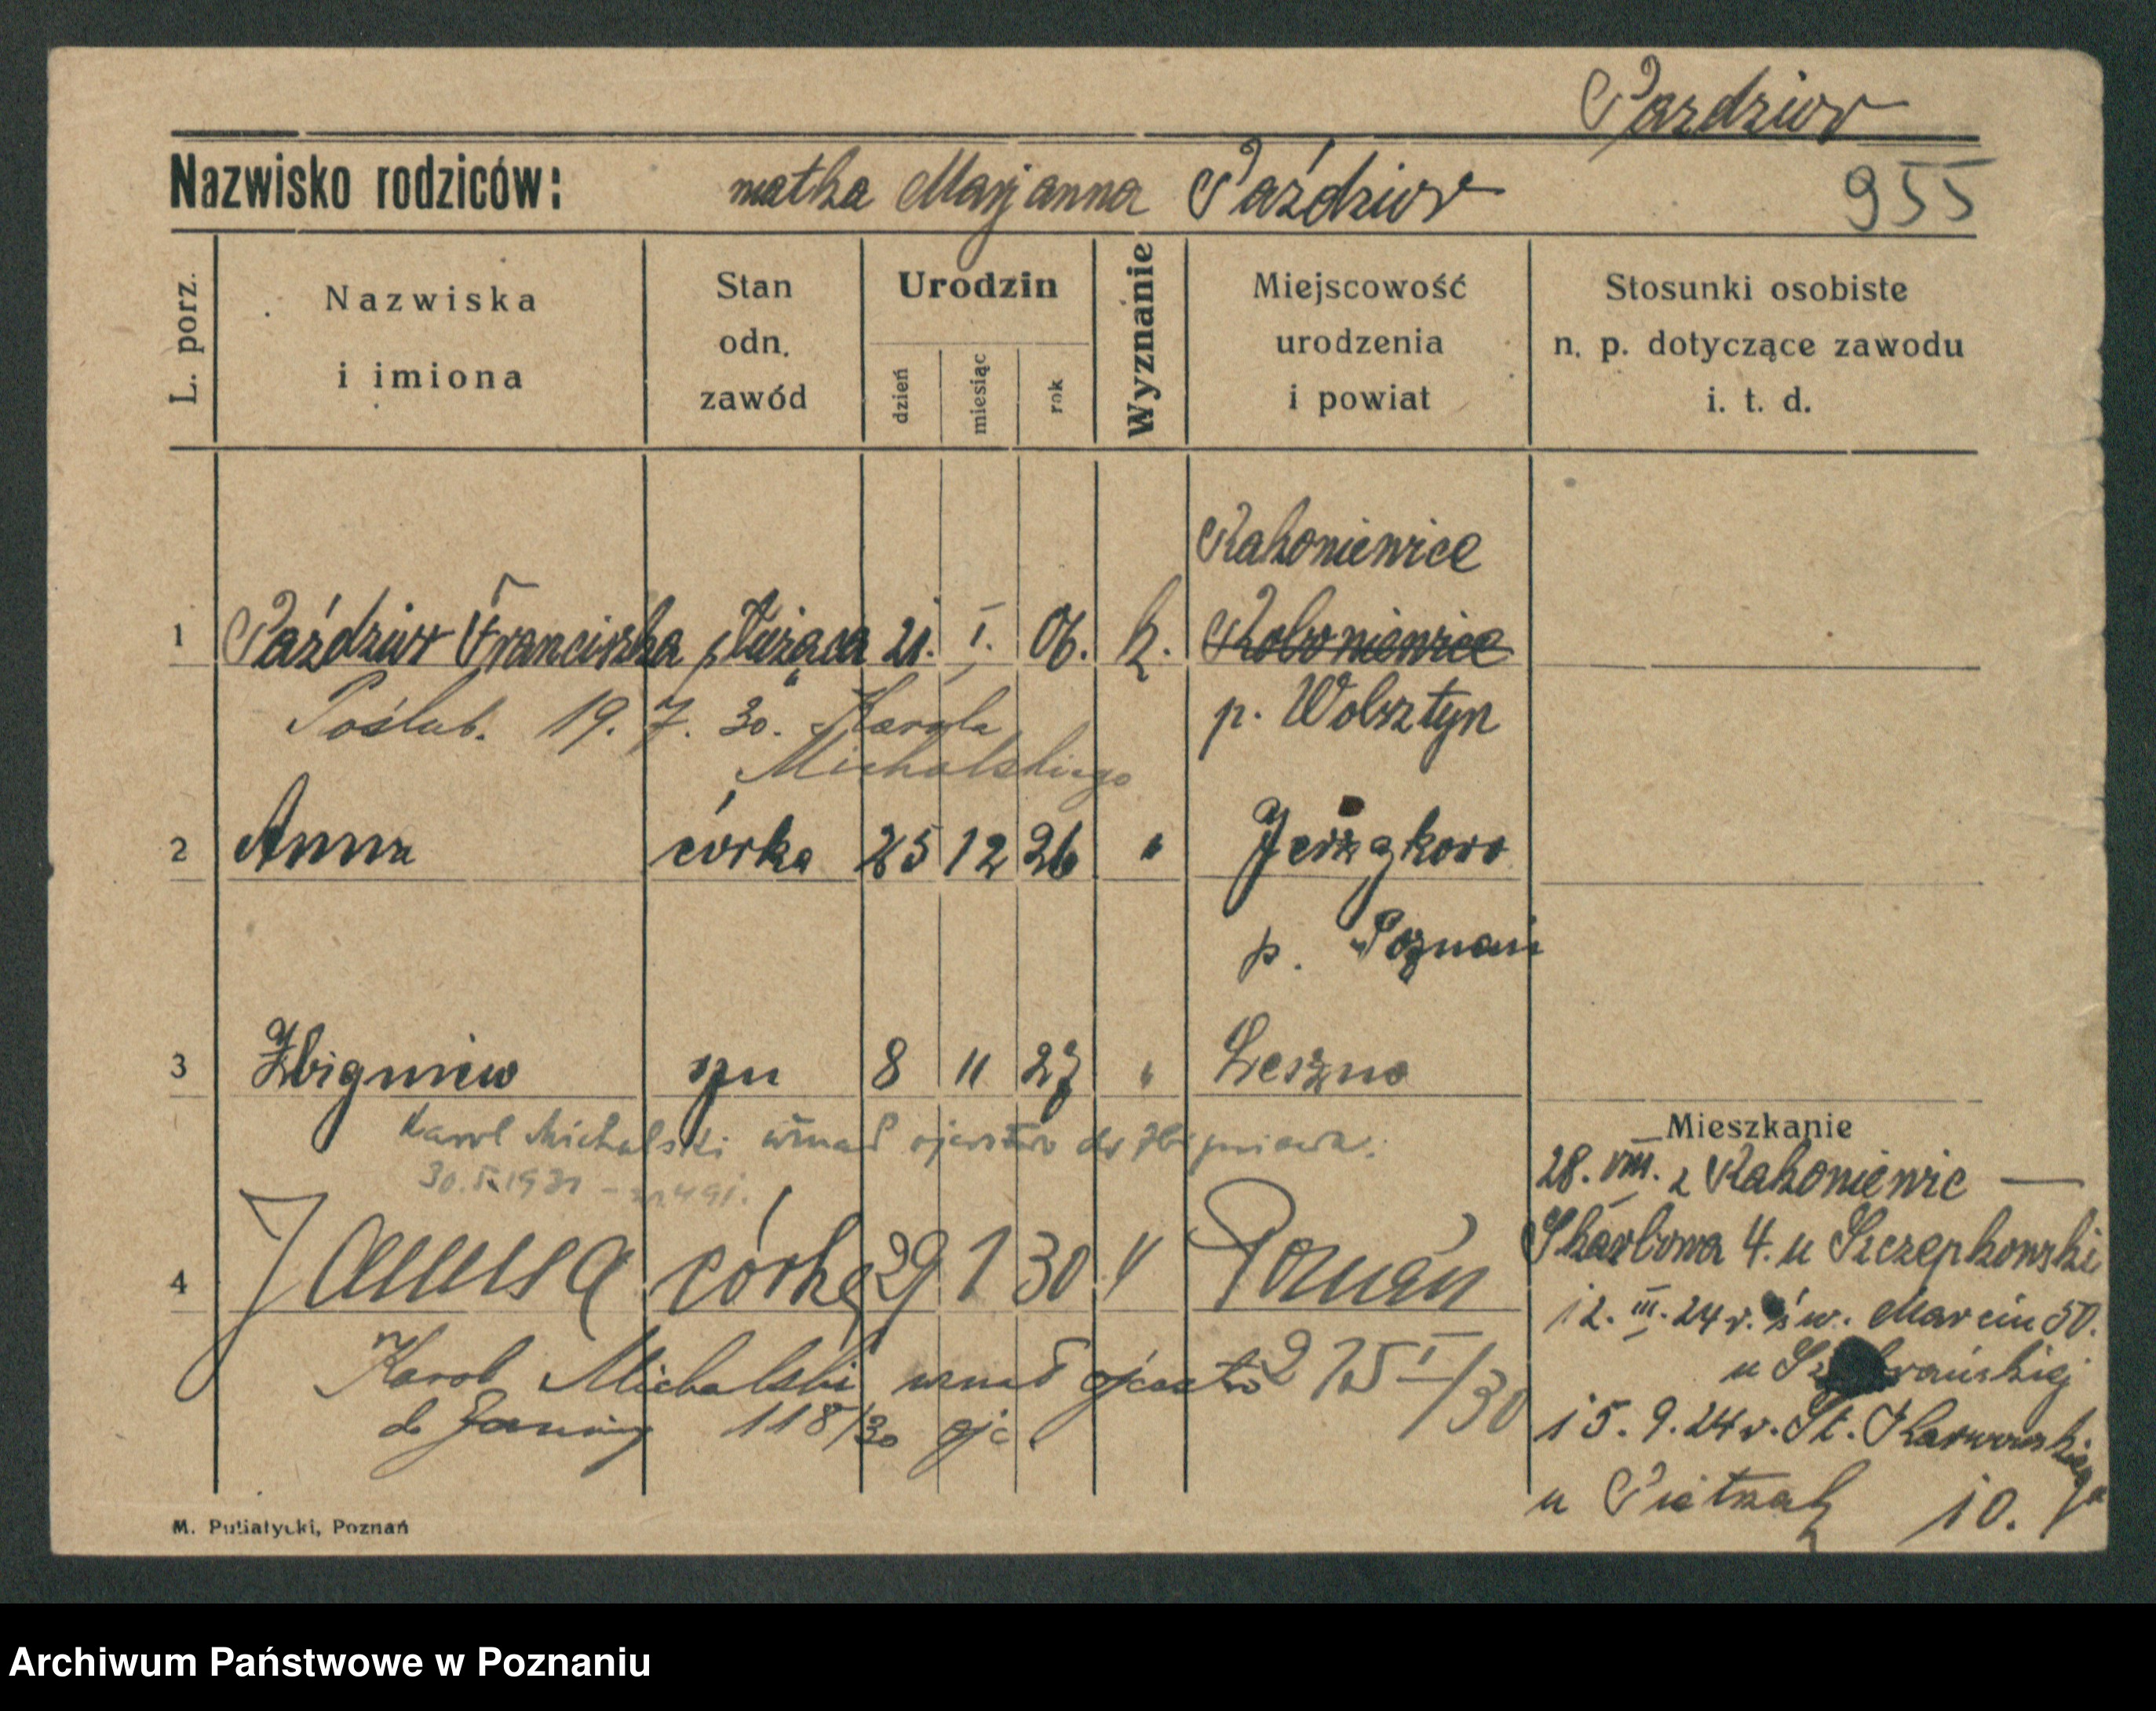 Pazdzior
Nazwisko rodziców: matka Marjanna Paździor 955
L. porz.
Nazwiska i imiona
Stan odn. zawód
Urodzin
dzień miesiąc rok
Wyznanie
Miejscowość urodzenia i powiat
Stosunki osobiste n. p. dotyczące zawodu i. t. d.
Rakoniewice
1 Paździor Franciszka służąca 21. I. 06. k. Roboniewice
Poślub. 19. 7. 30. Karola p. Wolsztyn
Michalskiego
2 Anna córka 25 12 26 "
p. Poznań
3 Zbigniew syn 8 11 27 " Leszno
Karol Michalski uznał ojcostwo do Zbigniewa.
30. 5. 1931
4 Janina córka 29 1 30 " Poznań
Karol Michalski uznał ojcostwo 275 I/30
do Janiny 118/30 ojc.
Mieszkanie
28. VIII. z Rakoniewic —
Skarbowa 4. u Szczepkowski
12. III. 24 r. św. Marcin 50.
u
15. 9. 24 r. St. Karwowskiego
u Pietrzak 10.
M. Putiatycki, Poznań
Archiwum Państwowe w Poznaniu